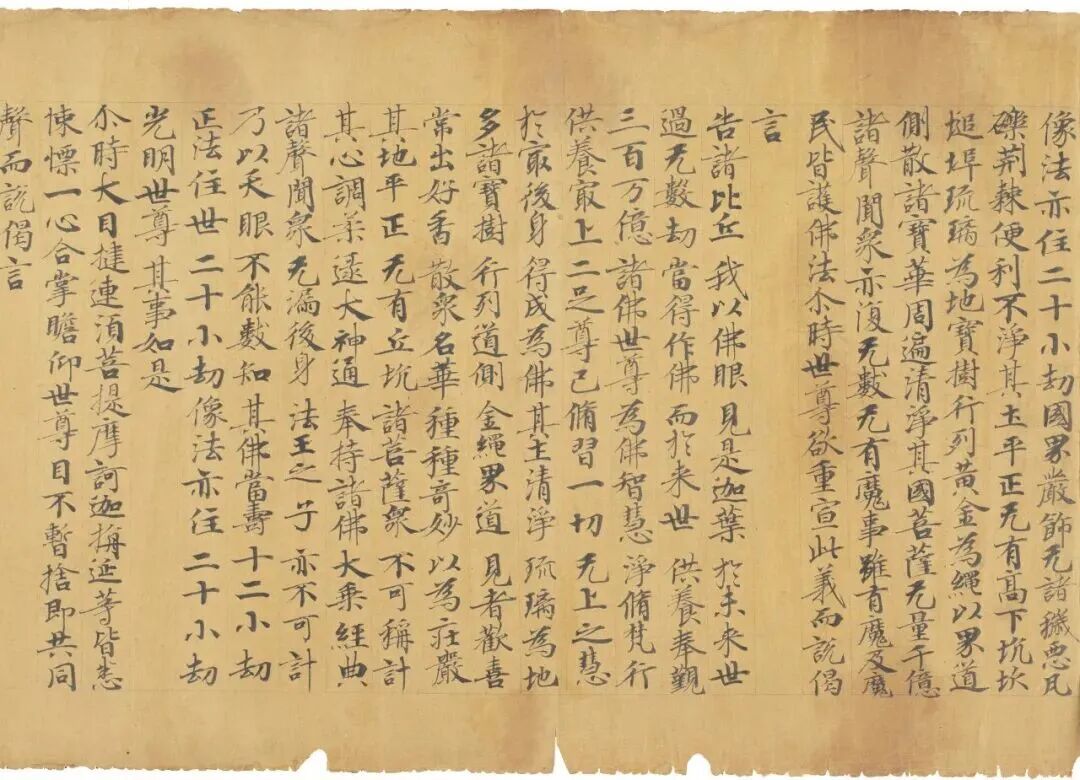 像法亦住二十小劫國界嚴飾无諸穢惡瓦
礫荊棘便利不淨其土平正无有高下坑坎
塠埠琉璃為地寶樹行列黃金為繩以界道
側散諸寶華周遍清淨其國菩薩无量千億
諸聲聞眾亦復无數无有魔事雖有魔及魔
民皆護佛法尒時世尊欲重宣此義而說偈
言
告諸比丘 我以佛眼 見是迦葉 於未來世
過无數劫 當得作佛 而於來世 供養奉覲
三百万億 諸佛世尊 為佛智慧 淨脩梵行
供養冣上 二足尊已 脩習一切 无上之慧
於冣後身 得成為佛 其土清淨 琉璃為地
多諸寶樹 行列道側 金繩界道 見者歡喜
常出好香 散眾名華 種種奇妙 以為莊嚴
其地平正 无有丘坑 諸菩薩眾 不可稱計
其心調柔 逮大神通 奉持諸佛 大乘經典
諸聲聞眾 无漏後身 法王之子 亦不可計
乃以天眼 不能數知 其佛當壽 十二小劫
正法住世 二十小劫 像法亦住 二十小劫
光明世尊 其事如是
尒時大目揵連須菩提摩訶迦旃延等皆悉
悚慄一心合掌瞻仰世尊目不暫捨即共同
聲而說偈言